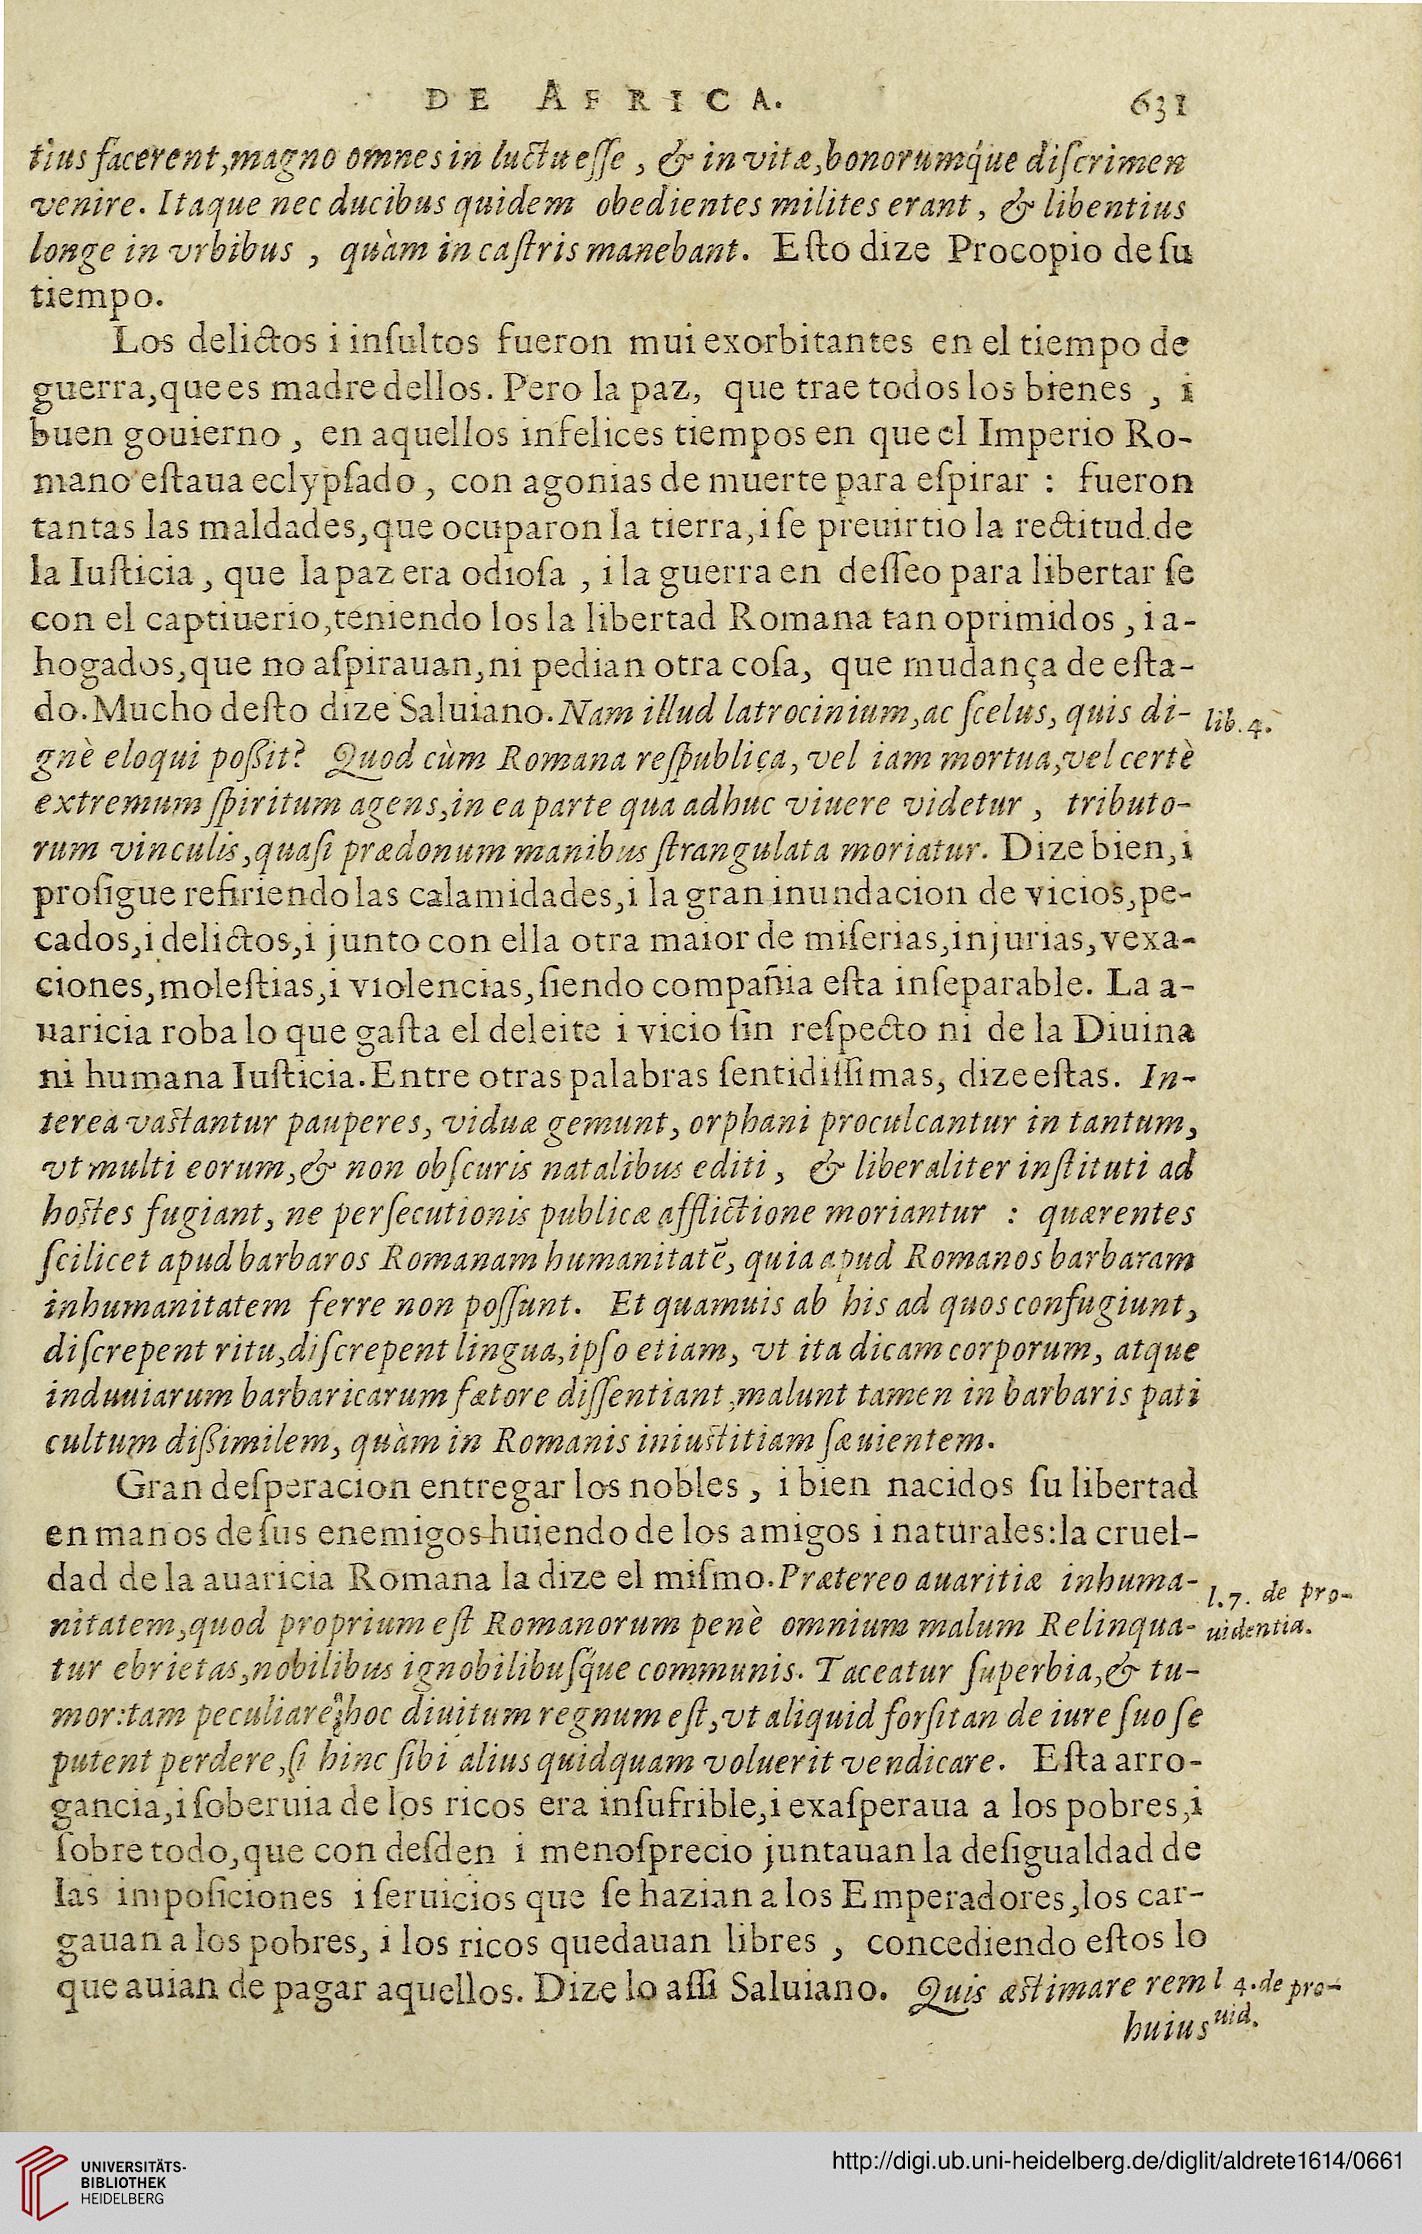 DE AFRICA. 631
tius facerent, magno omnes in luctu eſſe, & in vitæ, bonorumq́ue diſcrimen
venire. Itaque nec ducibus quidem obedientes milites erant, & libentius
longe in vrbibus, quàm in caſtris manebant. Eſto dize Procopio de ſu
tiempo.
Los delictos i inſultos fueron mui exorbitantes en el tiempo de
guerra, que es madre dellos. Pero la paz, que trae todos los bienes, i
buen gouierno, en aquellos infelices tiempos en que el Imperio Ro-
mano eſtaua eclypſado, con agonias de muerte para eſpirar: fueron
tantas las maldades, que ocuparon la tierra, i ſe preuirtio la rectitud de
la Iuſticia, que la paz era odioſa, i la guerra en deſſeo para libertar ſe
con el captiuerio, teniendo los la libertad Romana tan oprimidos, i a-
hogados, que no aſpirauan, ni pedian otra coſa, que mudança de eſta-
do. Mucho deſto dize Saluiano. Nam illud latrocinium, ac ſcelus, quis di- lib. 4.
gnè eloqui poßit? Quod cùm Romana reſpublica, vel iam mortua, vel certè
extremum ſpiritum agens, in ea parte qua adhuc viuere videtur, tributo-
rum vinculis, quaſi prædonum manibus ſtrangulata moriatur. Dize bien, i
proſigue refiriendo las calamidades, i la gran inundacion de vicios, pe-
cados, i delictos, i junto con ella otra maior de miſerias, injurias, vexa-
ciones, moleſtias, i violencias, ſiendo compañia eſta inſeparable. La a-
uaricia roba lo que gaſta el deleite i vicio ſin reſpecto ni de la Diuina
ni humana Iuſticia. Entre otras palabras ſentidiſſimas, dize eſtas. In-
terea vaſtantur pauperes, viduæ gemunt, orphani proculcantur in tantum,
vt multi eorum, & non obſcuris natalibus editi, & liberaliter inſtituti ad
hoſtes fugiant, ne perſecutionis publicæ afflictione moriantur: quærentes
ſcilicet apud barbaros Romanam humanitatē, quia apud Romanos barbaram
inhumanitatem ferre non poſſunt. Et quamuis ab his ad quos confugiunt,
diſcrepent ritu, diſcrepent lingua, ipſo etiam, vt ita dicam corporum, atque
induuiarum barbaricarum fætore diſſentiant, malunt tamen in barbaris pati
cultum dißimilem, quàm in Romanis iniuſtitiam ſæuientem.
Gran deſperacion entregar los nobles, i bien nacidos ſu libertad
en manos de ſus enemigos huiendo de los amigos i naturales: la cruel-
dad de la auaricia Romana la dize el miſmo. Prætereo auaritiæ inhuma- l. 7. de pro-
nitatem, quod proprium eſt Romanorum penè omnium malum Relinqua- uidentia.
tur ebrietas, nobilibus ignobilibuſq́ue communis. Taceatur ſuperbia, & tu-
mor: tam peculiare hoc diuitum regnum eſt, vt aliquid forſitan de iure ſuo ſe
putent perdere, ſi hinc ſibi alius quidquam voluerit vendicare. Eſta arro-
gancia, i ſoberuia de los ricos era inſufrible, i exaſperaua a los pobres, i
ſobre todo, que con deſden i menoſprecio juntauan la deſigualdad de
las impoſiciones i ſeruicios que ſe hazian a los Emperadores, los car-
gauan a los pobres, i los ricos quedauan libres, concediendo eſtos lo
que auian de pagar aquellos. Dize lo aſſi Saluiano. Quis æſtimare rem l 4. de pro-
huius uid.
UNIVERSITÄTS-
BIBLIOTHEK
HEIDELBERG
http://digi.ub.uni-heidelberg.de/diglit/aldrete1614/0661